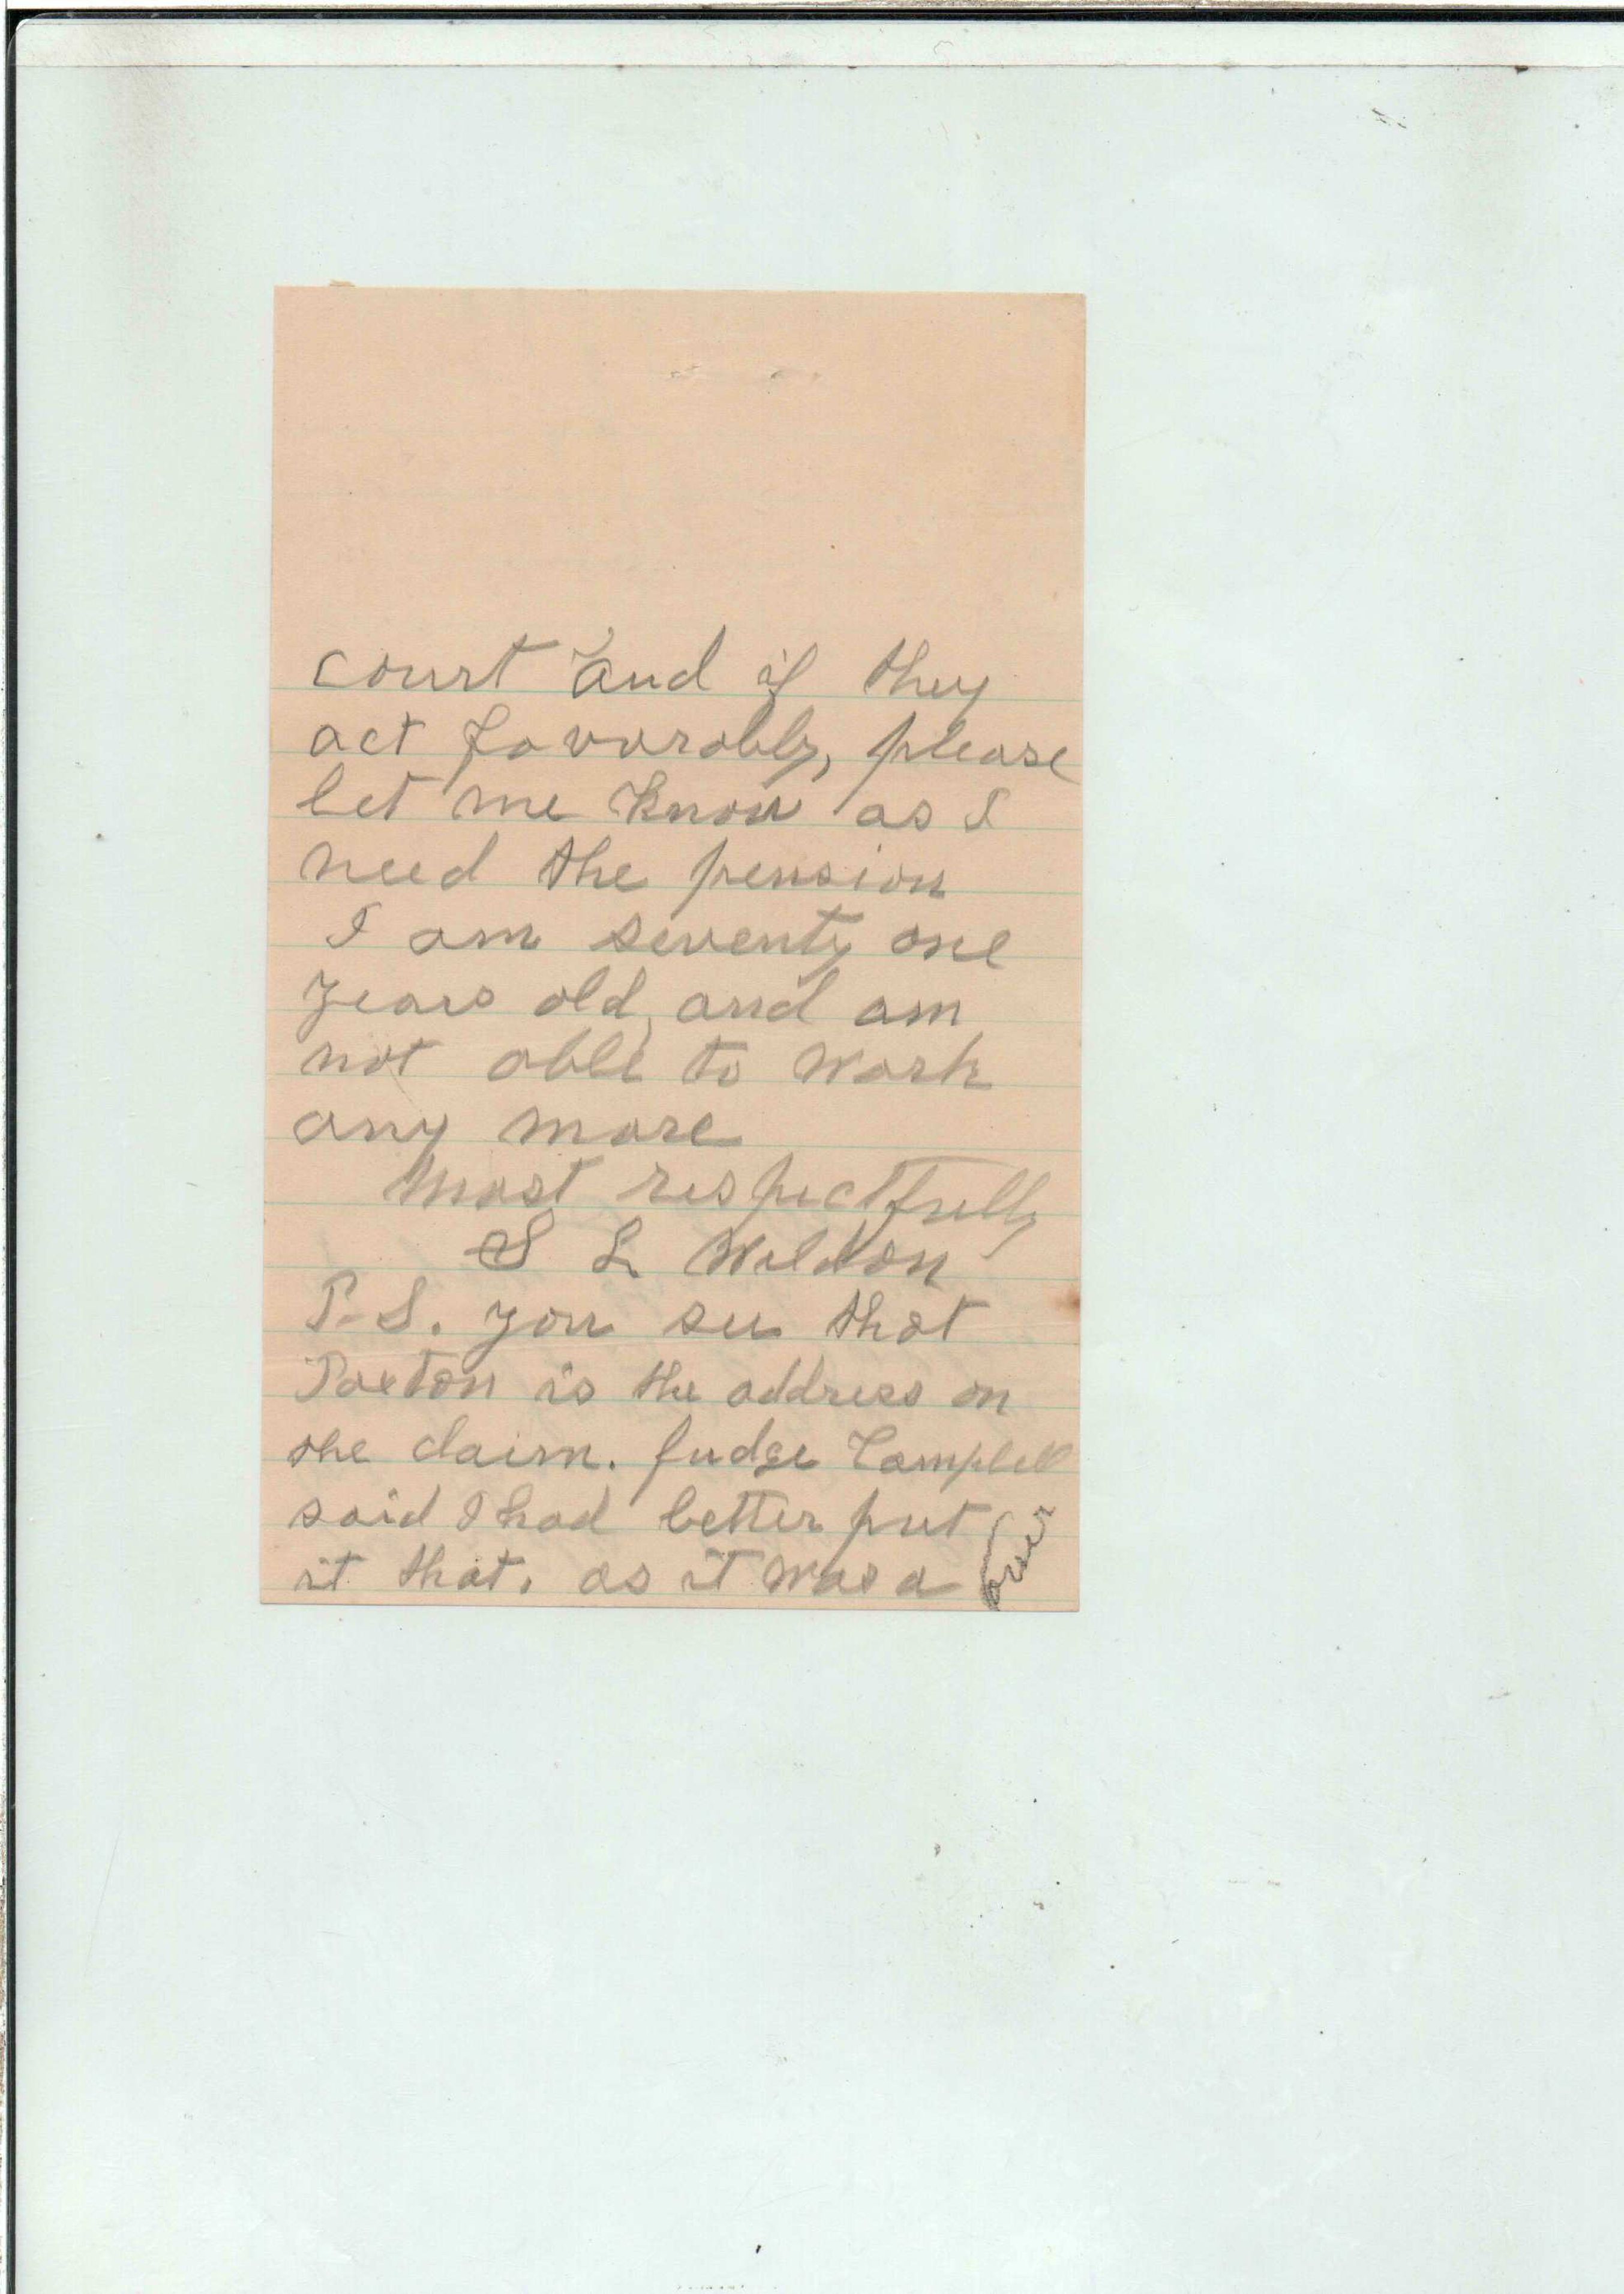 court and if they
act favorably, please
let me know as I
need the pension
I am seventy one
years old, and am
not able to work
any more
Most respectfully
S L Weldon
P.S. you see that
Paxton is the address on
the claim. Judge Campbell
said I had better put
it that. as it was a
over